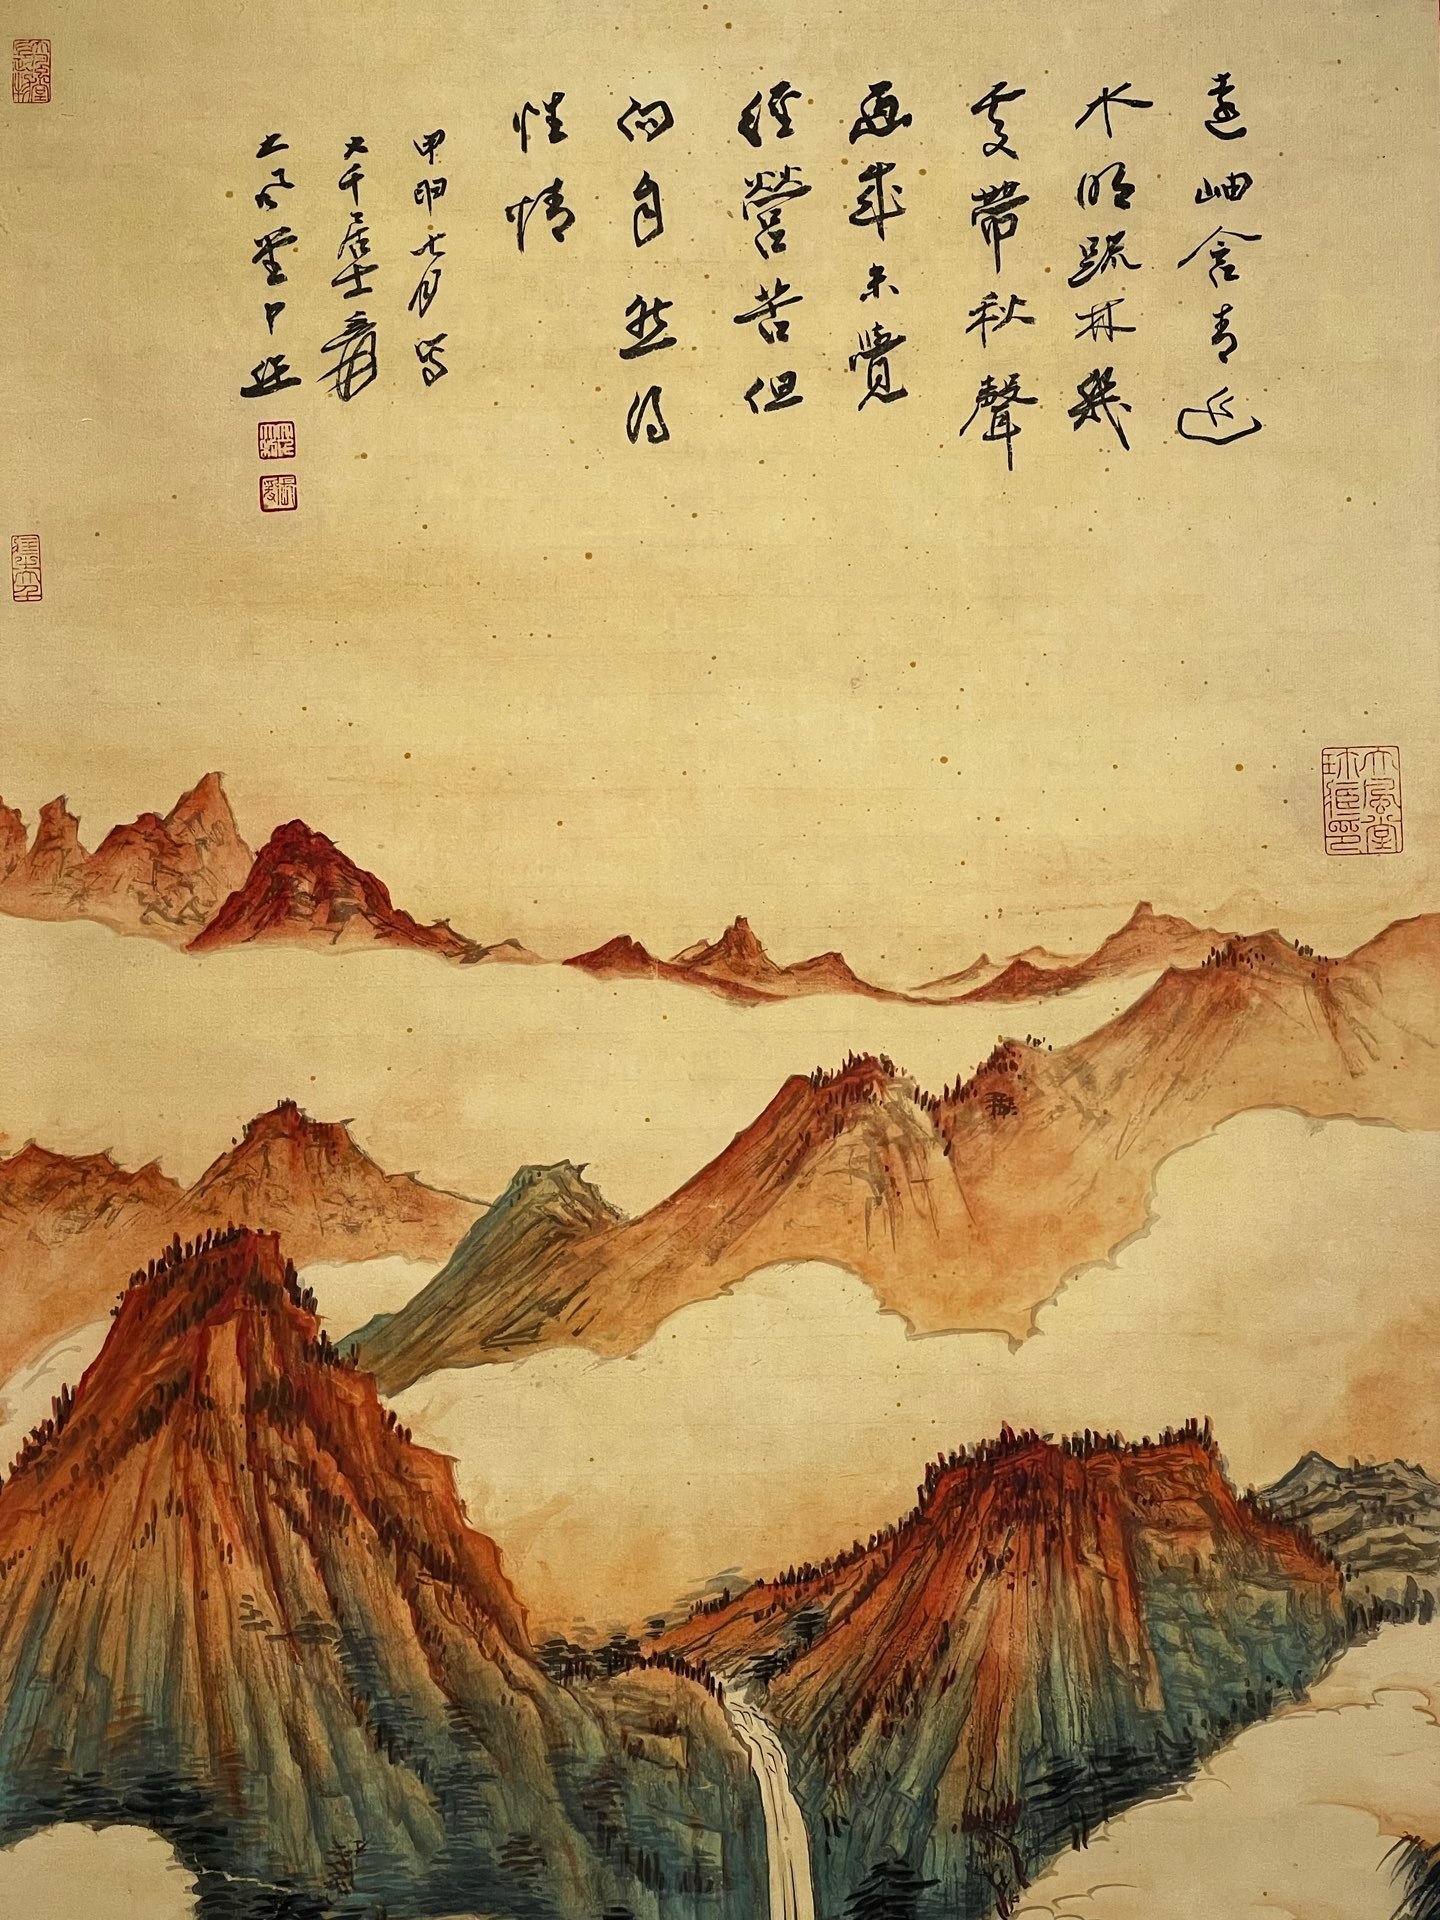 遠岫含青近
水明疏林幾
處帶秋聲
畫成未覺
經營苦但
向自然得
性情
甲申七月寫
大千居士爰
大風堂下
大風堂
珍藏印